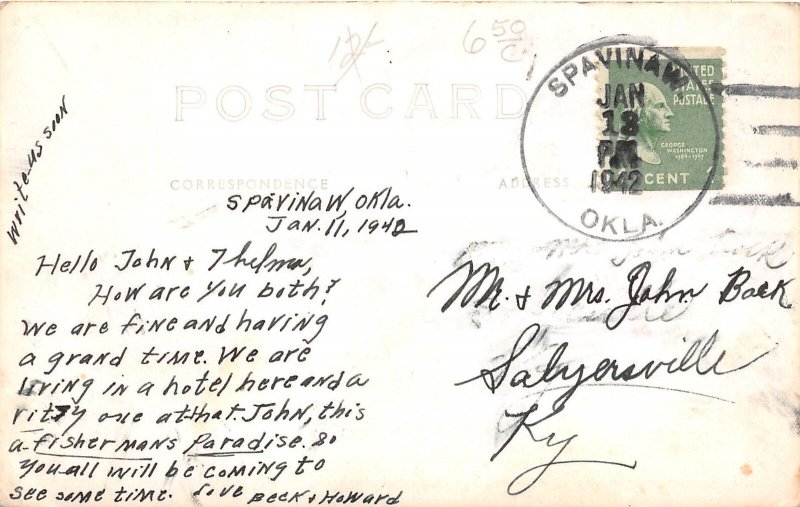 12
6 50/c
POST CARD
SPAVINAW
JAN
13
PM
1942
OKLA.
UNITED
STATES
POSTAGE
GEORGE
WASHINGTON
1789-1797
CENT
CORRESPONDENCE
ADDRESS
write-us soon
Spavinaw, Okla.
Jan. 11, 1942
Hello John & Thelma,
How are you both?
We are fine and having
a grand time. We are
living in a hotel here and a
ritzy one at that. John, this
a fishermans Paradise. So
you-all will be coming to
see some time. Love Beck & Howard
Mr. & Mrs. John Back
Salyersville
Ky